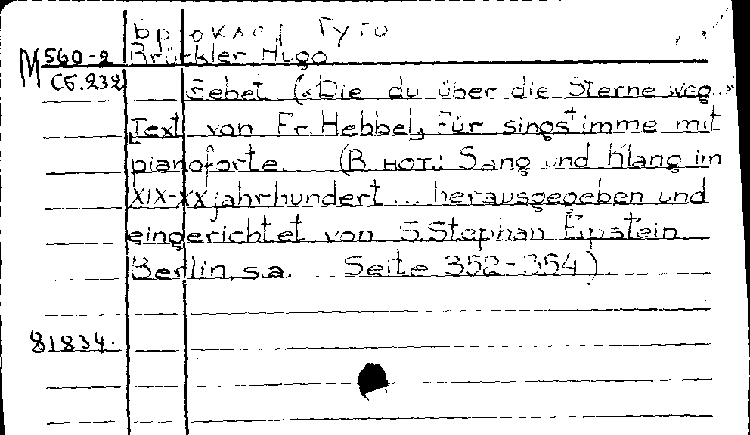 Брюклер Гуго
М 560-2 Brückler Hugo
Сб.232 Gebet („Die du über die Sterne weg..“
Text von Fr. Hebbel, Für singstimme mit
pianoforte. (В нот.: Sang und Klang im
XIX-XX jahrhundert ... herausgegeben und
eingerichtet von S. Stephan Epstein
Berlin, s.a. Seite 352-354)
81834.